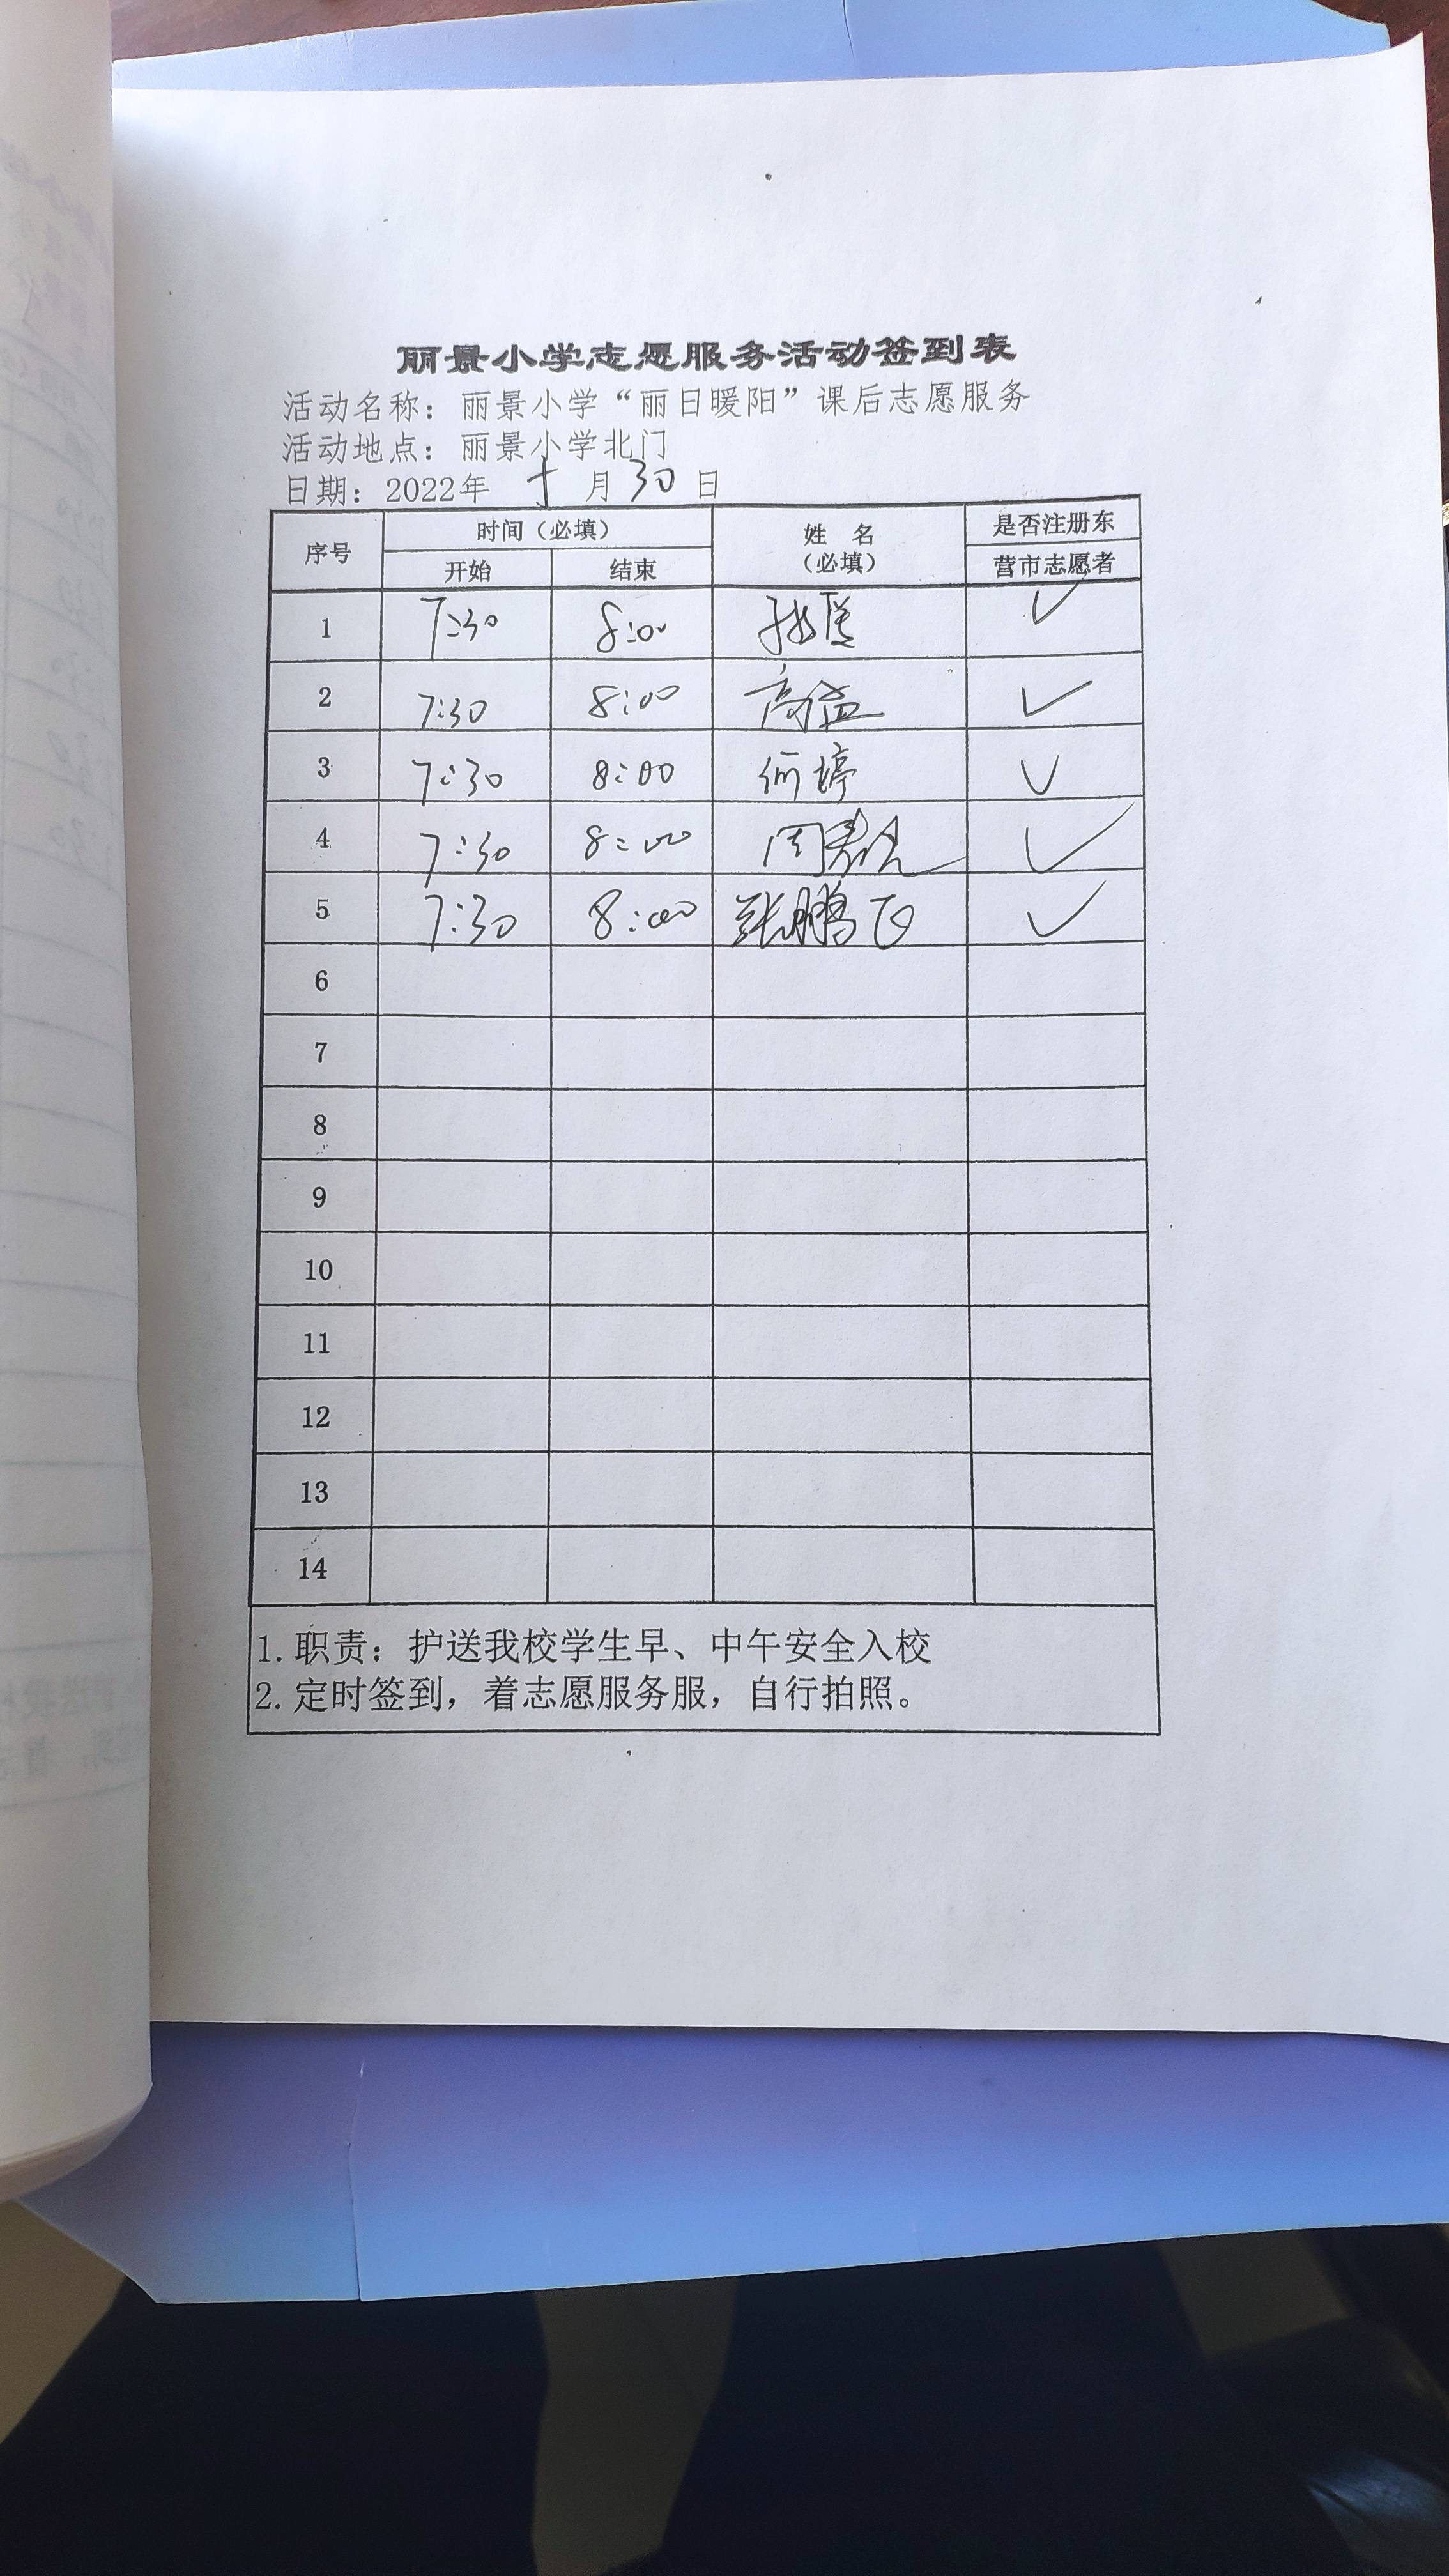 丽景小学志愿服务活动签到表
活动名称：丽景小学“丽日暖阳”课后志愿服务
活动地点：丽景小学北门
日期：2022年 月 30 日
序号 时间（必填） 姓 名 （必填） 是否注册东
开始 结束 营市志愿者
1 7:30 8:00 ✓
2 7:30 8:00 高益 ✓
3 7:30 8:00 何婷 ✓
4 7:30 8:00 周 ✓
5 7:30 8:00 张鹏飞 ✓
6
7
8
9
10
11
12
13
14
1.职责：护送我校学生早、中午安全入校
2.定时签到，着志愿服务服，自行拍照。